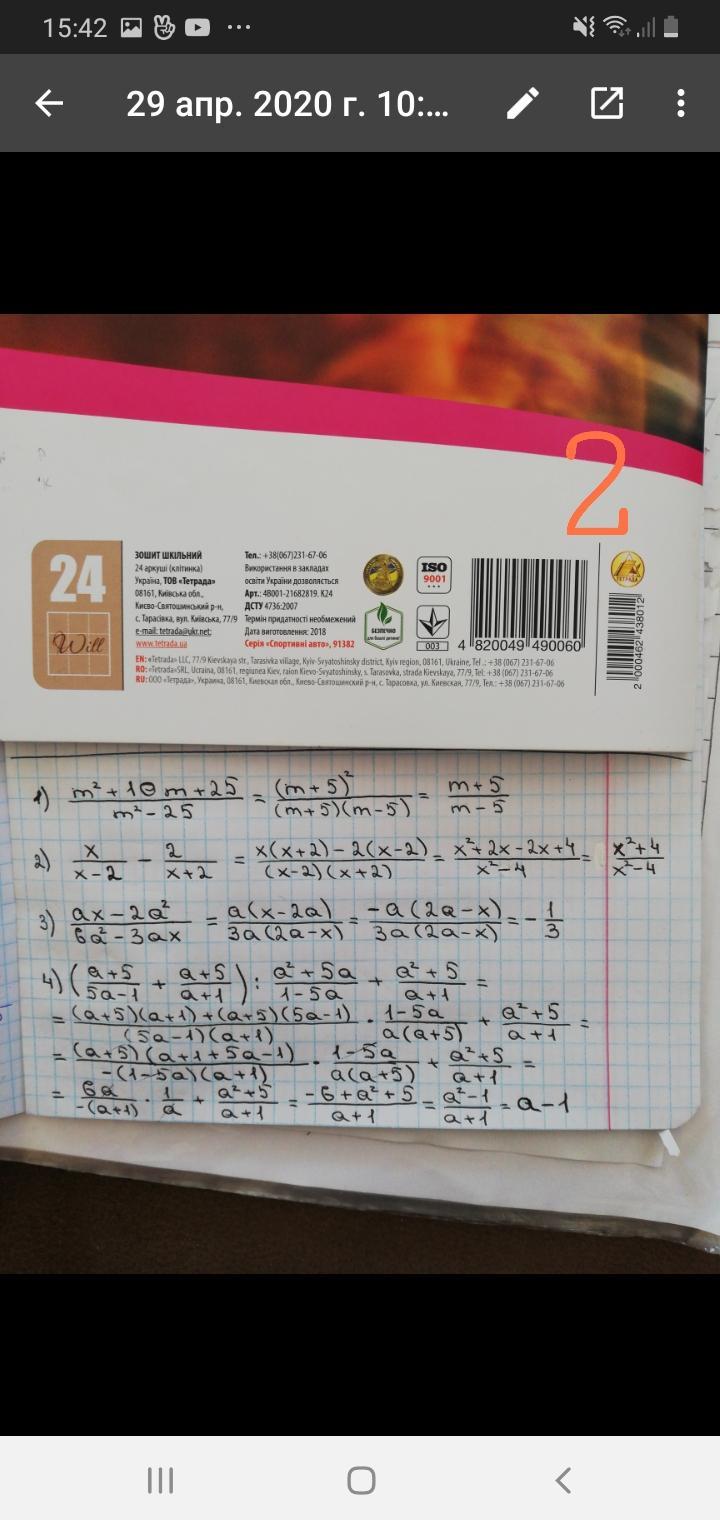 15:42
29 апр. 2020 г. 10:...
2
24
Will
ЗОШИТ ШКІЛЬНИЙ
24 аркуші (клітинка)
Україна, ТОВ «Тетрада»
08161, Київська обл.,
Києво-Святошинський р-н,
с. Тарасівка, вул. Київська, 77/9
e-mail: tetrada@ukr.net;
www.tetrada.ua
Тел.: +38(067)231-67-06
Використання в закладах
освіти України дозволяється
Арт.: 48001-21682819. К24
ДСТУ 4736:2007
Термін придатності необмежений
Дата виготовлення: 2018
Серія «Спортивні авто», 91382
БЕЗПЕЧНО
для Вашої дитини
ISO
9001
003
4 820049 490060
ТЕТРАДА
2 000462 438012
EN: «Tetrada» LLC, 77/9 Kievskaya str., Tarasivka village, Kyiv-Svyatoshinsky district, Kyiv region, 08161, Ukraine, Tel .: +38 (067) 231-67-06
RO: «Tetrada»SRL, Ucraina, 08161, regiunea Kiev, raion Kievo-Svyatoshinsky, s. Tarasovka, strada Kievskaya, 77/9, Tel: +38 (067) 231-67-06
RU: ООО «Тетрада», Украина, 08161, Киевская обл., Киево-Святошинский р-н, с. Тарасовка, ул. Киевская, 77/9, Тел.: +38 (067) 231-67-06
1) (m² + 10m + 25)/(m² - 25) = (m + 5)²/((m + 5)(m - 5)) = (m + 5)/(m - 5)
2) x/(x - 2) - 2/(x + 2) = (x(x + 2) - 2(x - 2))/((x - 2)(x + 2)) = (x² + 2x - 2x + 4)/(x² - 4) = (x² + 4)/(x² - 4)
3) (ax - 2a²)/(6a² - 3ax) = a(x - 2a)/(3a(2a - x)) = -a(2a - x)/(3a(2a - x)) = - 1/3
4) ((a + 5)/(5a - 1) + (a + 5)/(a + 1)) : (a² + 5a)/(1 - 5a) + (a² + 5)/(a + 1) =
= ((a + 5)(a + 1) + (a + 5)(5a - 1))/((5a - 1)(a + 1)) · (1 - 5a)/(a(a + 5)) + (a² + 5)/(a + 1) =
= (a + 5)(a + 1 + 5a - 1)/(-(1 - 5a)(a + 1)) · (1 - 5a)/(a(a + 5)) + (a² + 5)/(a + 1) =
= 6a/(-(a + 1)) · 1/a + (a² + 5)/(a + 1) = (-6 + a² + 5)/(a + 1) = (a² - 1)/(a + 1) = a - 1